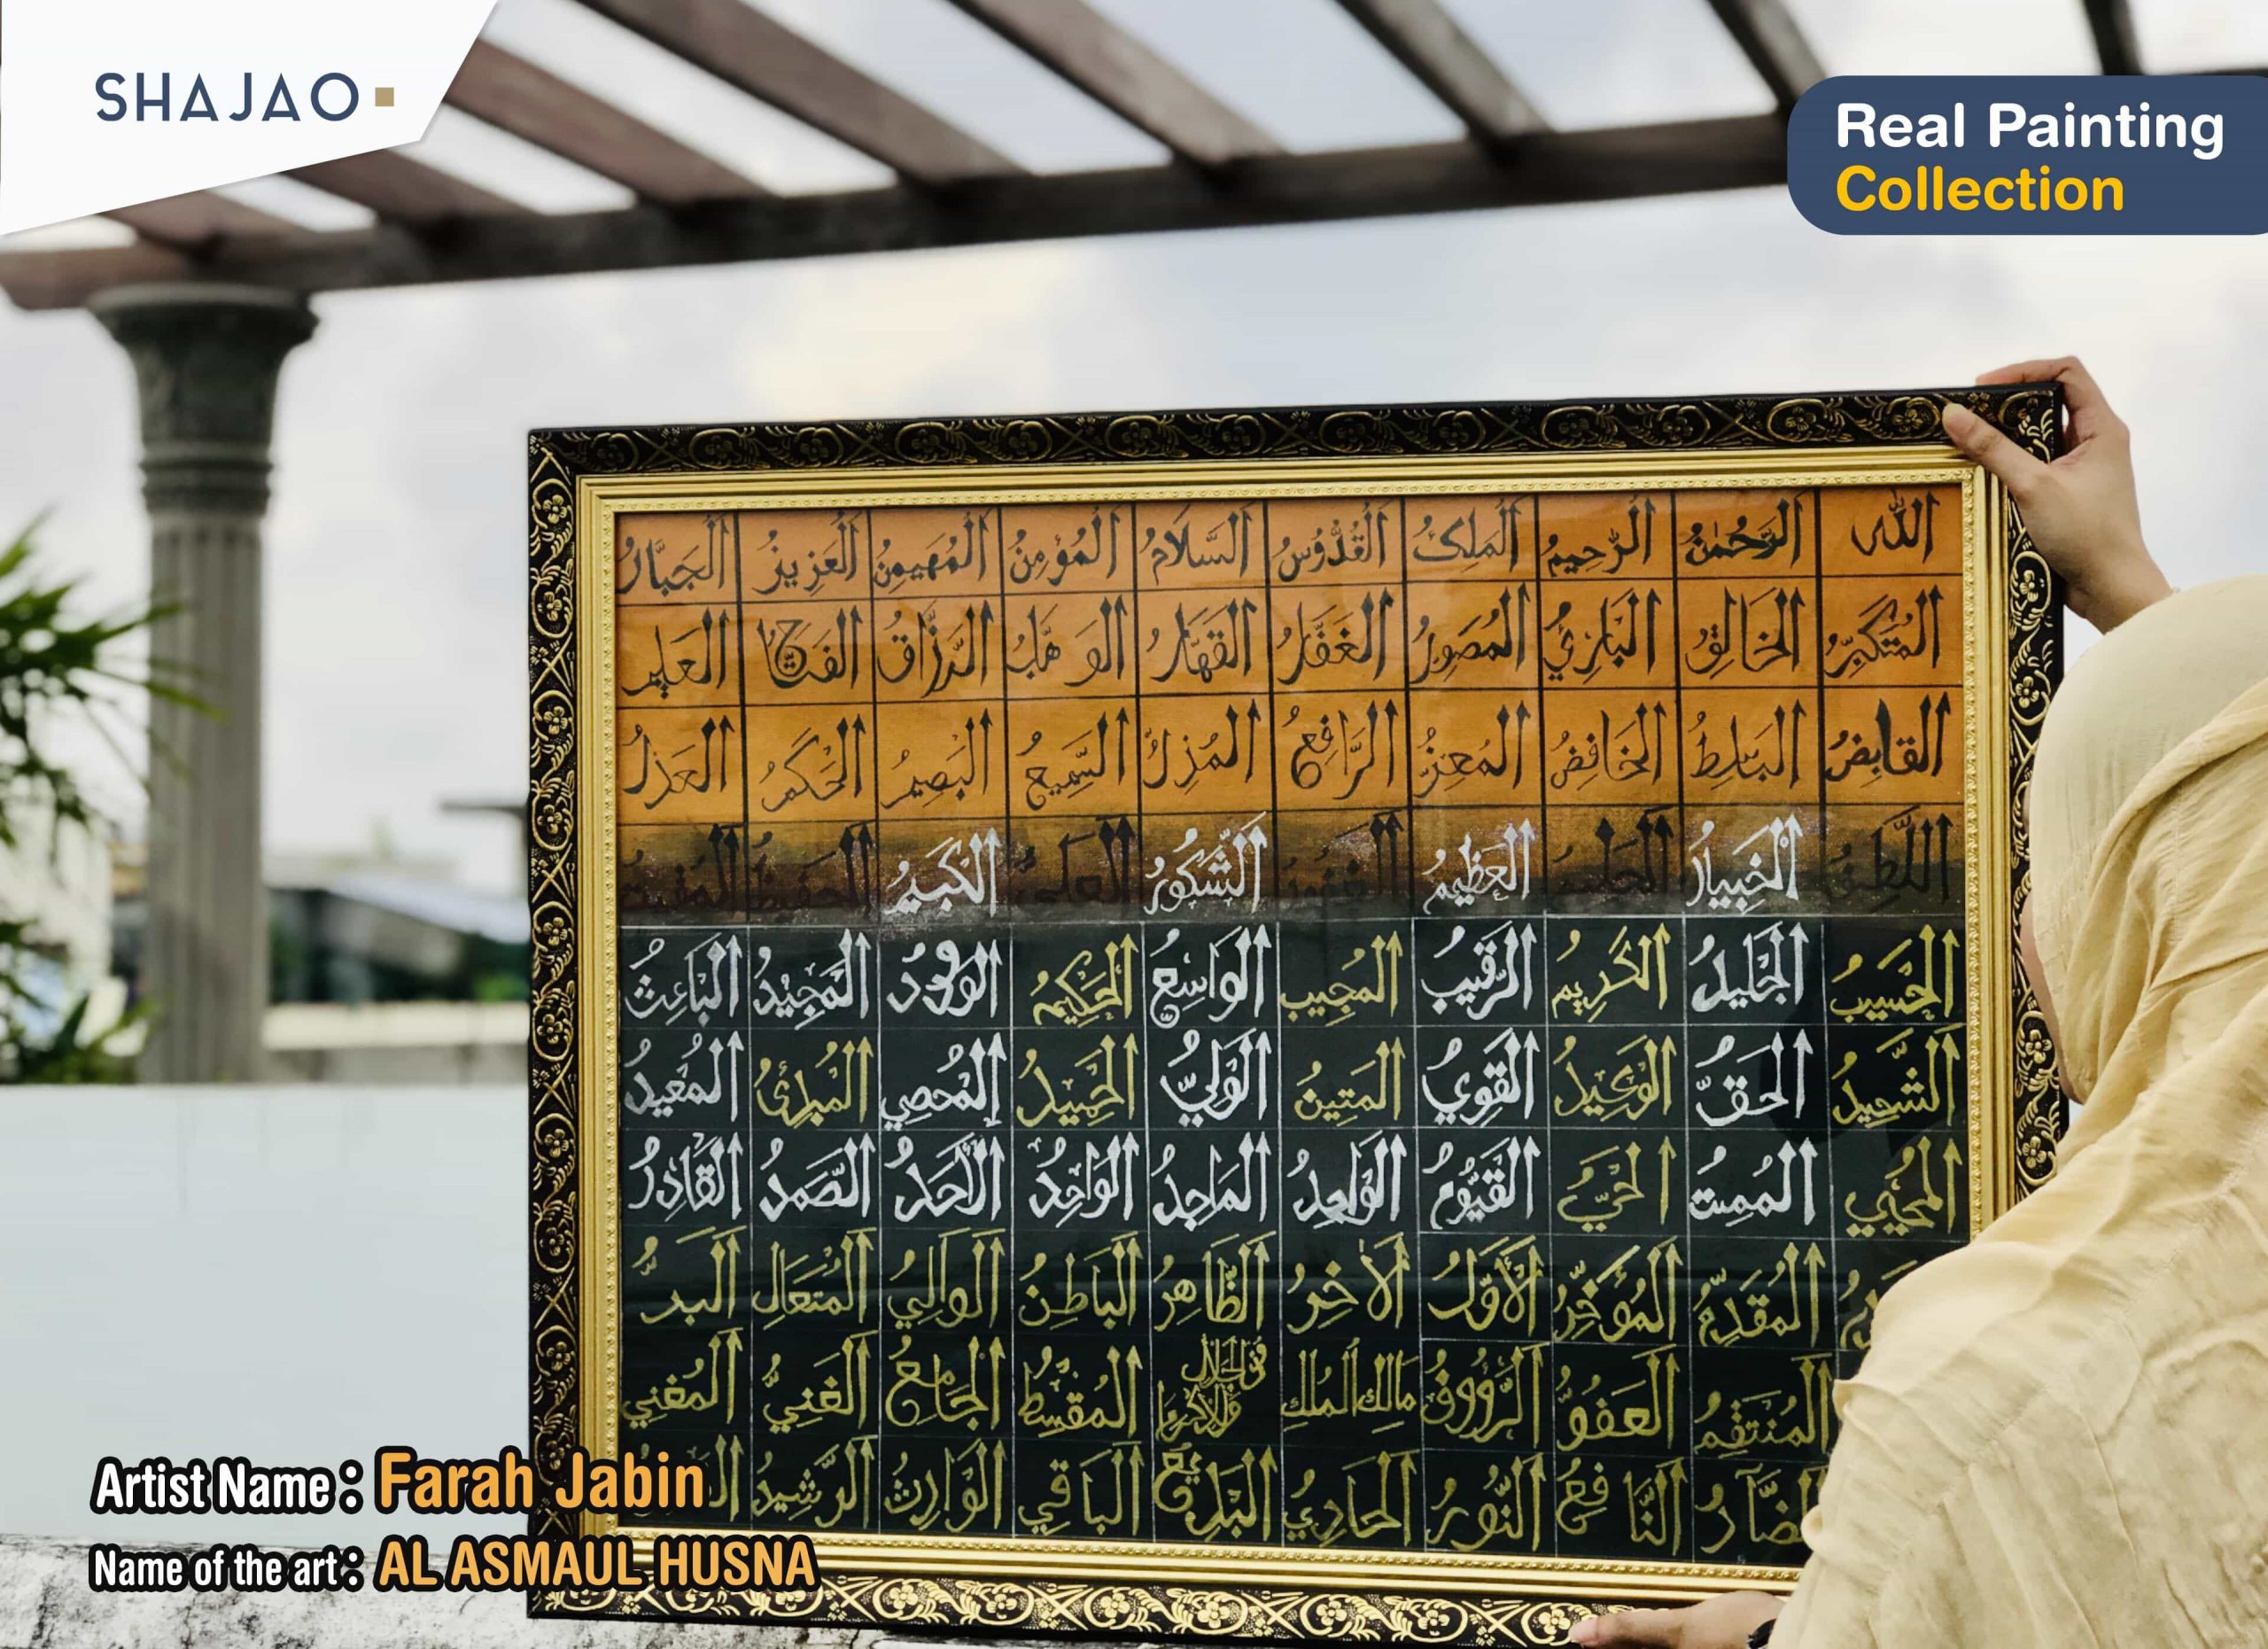 SHAJAO
Real Painting
Collection
الله الرَّحْمٰنُ الرَّحِيمُ المَلِكُ القُدُّوسُ السَّلَامُ المُؤمِنُ المُهَيمِنُ العَزِيزُ الجَبَّارُ
المُتَكَبِّرُ الخَالِقُ البَارِئُ المُصَوِرُ الغَفَّارُ القَهَّارُ الوَهَّابُ الرَّزَّاقُ الفَتَّاحُ العَلِيمُ
القَابِضُ الخَافِضُ المُعِزُّ الرَّافِعُ المُذِلُ السَّمِيعُ البَصِيرُ الحَكَمُ
العَظِيمُ الشَّكُورُ الكَبِيرُ
الحَسِيبُ الجَلِيلُ الكَرِيمُ الرَّقِيبُ المُجِيبُ الوَاسِعُ الحَكِيمُ المَجِيدُ البَاعِثُ
الحَقُّ الوَكِيلُ القَوِيُ المَتِينُ الوَلِيُّ الحَمِيدُ المُحصِي المُعِيدُ
المُحْيِي الحَيُّ القَيُّومُ المَاجِدُ الوَاحِدُ الأَحَدُ الصَّمَدُ القَادِرُ
المُقَدِّمُ المُؤَخِّرُ الأَوَّلُ الآخِرُ الظَّاهِرُ البَاطِنُ الوَالِي المُتَعَالِ البَرُّ
المُنْتَقِمُ العَفُوُّ الرَّؤُوفُ مَالِكُ المُلْكِ المُقْسِطُ الجَامِعُ الغَنِيُّ المُغْنِي
النَّافِعُ النُّورُ البَاقِي الوَارِثُ الرَّشِيدُ
Artist Name : Farah Jabin
Name of the art : AL ASMAUL HUSNA